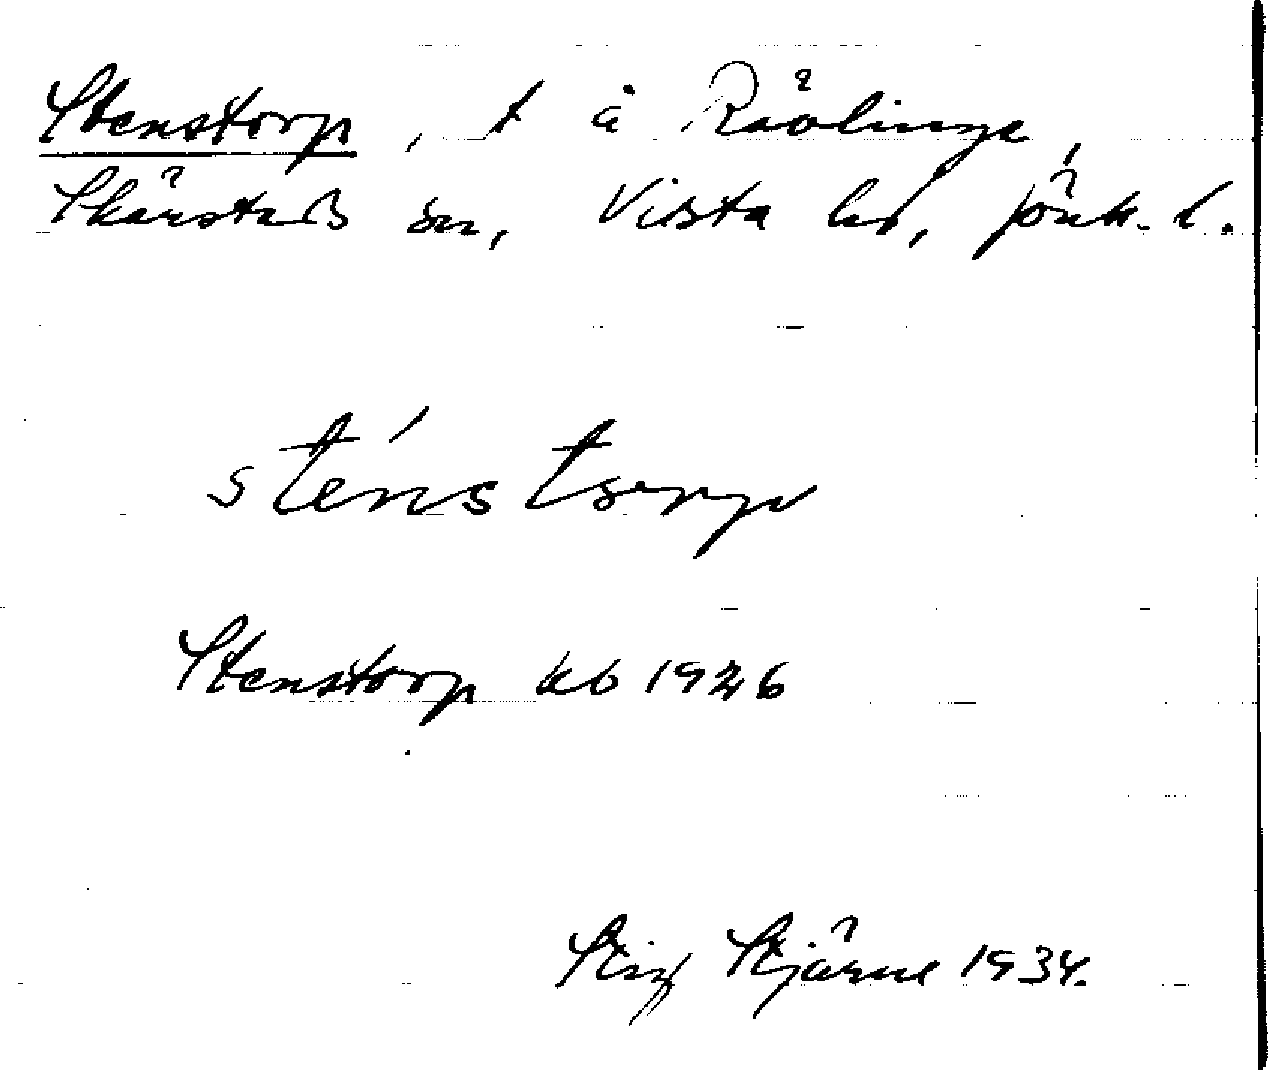 Stenstorp, t å Rävlinge,
Skärstads sn, Vista hd, Jönk. l.
sténstorp
Stenstorp kb 1926
Stig Stjärne 1934.